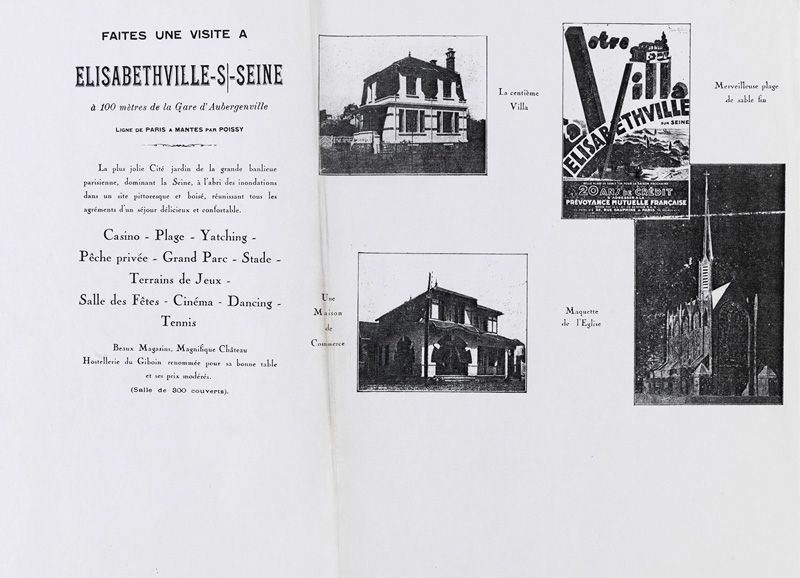 FAITES UNE VISITE A
ELISABETHVILLE-S/-SEINE
à 100 mètres de la Gare d'Aubergenville
LIGNE DE PARIS A MANTES PAR POISSY
La plus jolie Cité jardin de la grande banlieue
parisienne, dominant la Seine, à l'abri des inondations
dans un site pittoresque et boisé, réunissant tous les
agréments d'un séjour délicieux et confortable.
Casino - Plage - Yatching -
Pêche privée - Grand Parc - Stade -
Terrains de Jeux -
Salle des Fêtes - Cinéma - Dancing -
Tennis
Beaux Magasins, Magnifique Château
Hostellerie du Giboin renommée pour sa bonne table
et ses prix modérés.
(Salle de 300 couverts).
La centième
Villa
Une
Maison
de
Commerce
Votre
Villa
à
ELISABETHVILLE
SUR SEINE
20 ANS DE CRÉDIT
PRÉVOYANCE MUTUELLE FRANÇAISE
Merveilleuse plage
de sable fin
Maquette
de l'Eglise